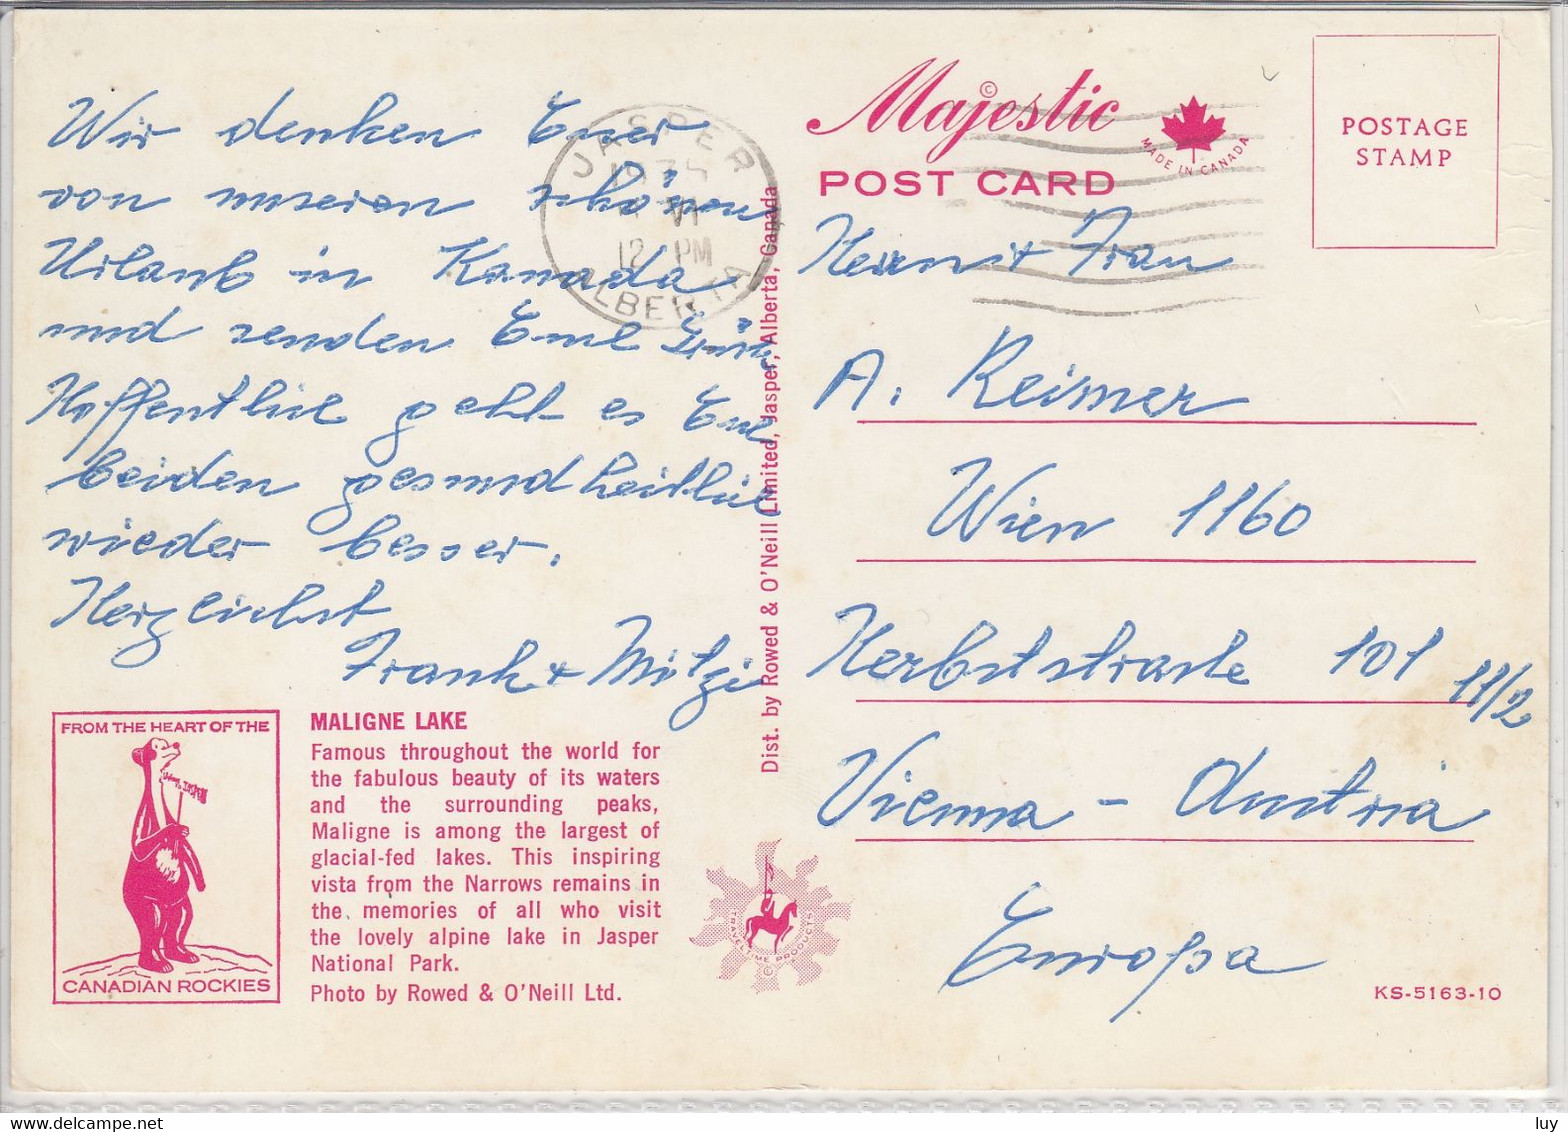 Wir denken Euer
von unseren schönen
Urlaub in Kanada
und senden Euch Grüße
Hoffentlich geht es Euch
beiden gesundheitlich
wieder besser.
Herzlichst
Frank + Mitzi
FROM THE HEART OF THE
CANADIAN ROCKIES
MALIGNE LAKE
Famous throughout the world for
the fabulous beauty of its waters
and the surrounding peaks,
Maligne is among the largest of
glacial-fed lakes. This inspiring
vista from the Narrows remains in
the memories of all who visit
the lovely alpine lake in Jasper
National Park.
Photo by Rowed & O'Neill Ltd.
JASPER
VI
12 PM
ALBERTA
Dist. by Rowed & O'Neill Limited, Jasper, Alberta, Canada
TRAVELTIME PRODUCTS
©
Majestic
POST CARD
MADE IN CANADA
POSTAGE
STAMP
Herrn u Frau
A. Reimer
Wien 1160
Herbststraße 101 11/2
Vienna - Austria
Europa
KS-5163-10
luy